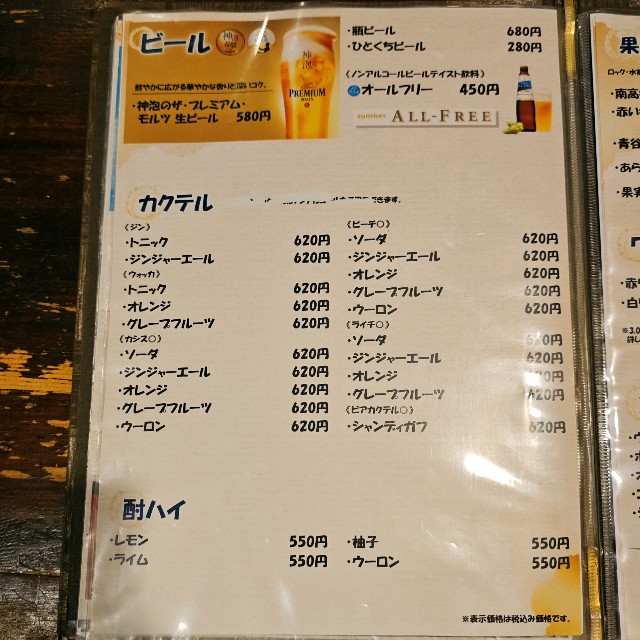 ビール
鮮やかに広がる華やかな香りと深いコク。
・神泡のザ・プレミアム・
モルツ 生ビール 580円
神泡
PREMIUM
MALT'S
・瓶ビール 680円
・ひとくちビール 280円
(ノンアルコールビールテイスト飲料)
オールフリー 450円
SUNTORY ALL-FREE
カクテル
できます。
(ジン)
・トニック 620円
・ジンジャーエール 620円
(ウォッカ)
・トニック 620円
・オレンジ 620円
・グレープフルーツ 620円
(カシス○)
・ソーダ 620円
・ジンジャーエール 620円
・オレンジ 620円
・グレープフルーツ 620円
・ウーロン 620円
(ピーチ○)
・ソーダ 620円
・ジンジャーエール 620円
・オレンジ 620円
・グレープフルーツ 620円
・ウーロン 620円
(ライチ○)
・ソーダ 620円
・ジンジャーエール 620円
・オレンジ 620円
・グレープフルーツ 620円
(ビアカクテル○)
・シャンディガフ 620円
酎ハイ
・レモン 550円
・ライム 550円
・柚子 550円
・ウーロン 550円
※表示価格は税込み価格です。
果
ロック・水
・南高
・赤い
・青谷
・あら
・果実
・赤
・白
※3.0
詳し